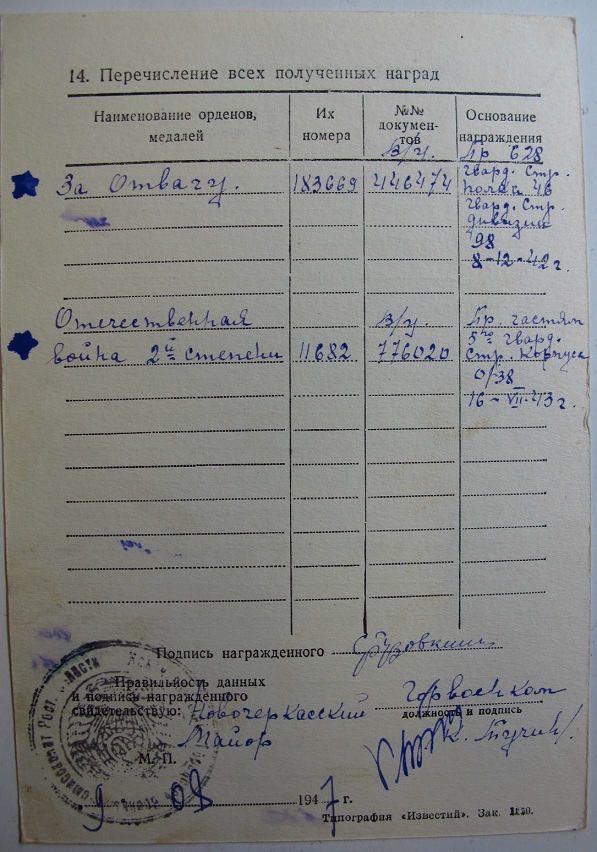 14. Перечисление всех полученных наград
Наименование орденов, медалей
Их номера
№№ документов
Основание награждения
За Отвагу.
183669
в/у.
446474
Пр 628
гвард. Стр.
полка 46
гвард. Стр.
дивизии
98
8-12-42 г.
Отечественная
война 2й степени
11682
в/у.
776020
Пр. частям
5го гвард.
Стр. Корпуса
0/38
16-VII-43 г.
Подпись награжденного
Правильность данных
и подпись награжденного
свидетельствую: Новочеркасский
Горвоенком
должность и подпись
Майор
М. П.
9 08 1947 г.
Типография «Известий». Зак. 1820.